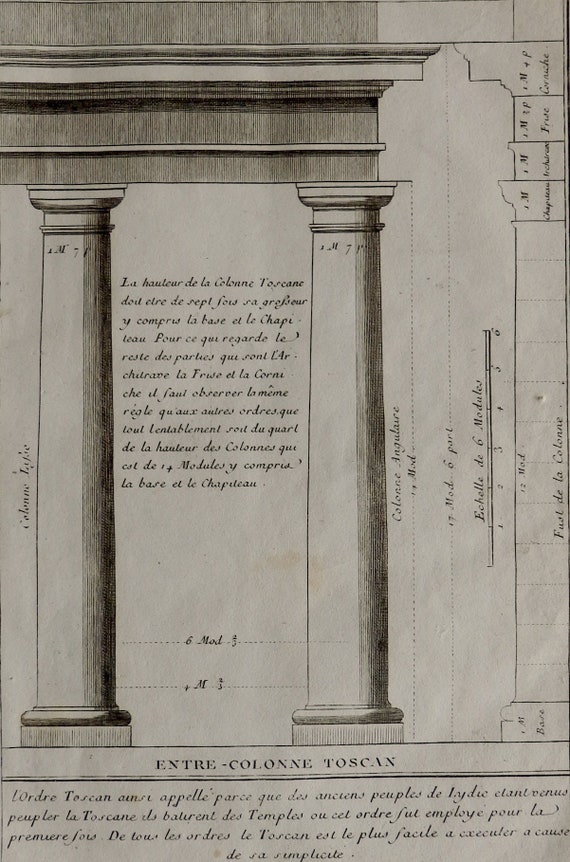 1 M 4 p
Corniche
1 M 2 p
Frise
1 M
Architrav
1 M
Chapiteau
1 M 7 p
1 M 7 p
La hauteur de la Colonne Toscane
doit etre de sept fois sa grosseur
y compris la base et le Chapi-
teau Pour ce qui regarde le
reste des parties qui sont l'Ar-
chitrave la Frise et la Corni
che il faut observer la même
régle qu'aux autres ordres, que
tout l'entablement soit du quart
de la hauteur des Colonnes qui
est de 14 Modules y compris
la base et le Chapiteau .
Colonne Lisse
Colonne Angulaire
14 Mod
17 Mod. 6 part
Echelle de 6 Modules
1 2 3 4 5 6
12 Mod
Fust de la Colonne
6 Mod 2/3
4 M 2/3
1 M
Base
ENTRE-COLONNE TOSCAN
l'Ordre Toscan ainsi appellé parce que des anciens peuples de Lydie etant venus
peupler la Toscane ils batirent des Temples ou cet ordre fut employe pour la
premiere fois. De tous les ordres le Toscan est le plus facile a executer a cause
de sa simplicité .